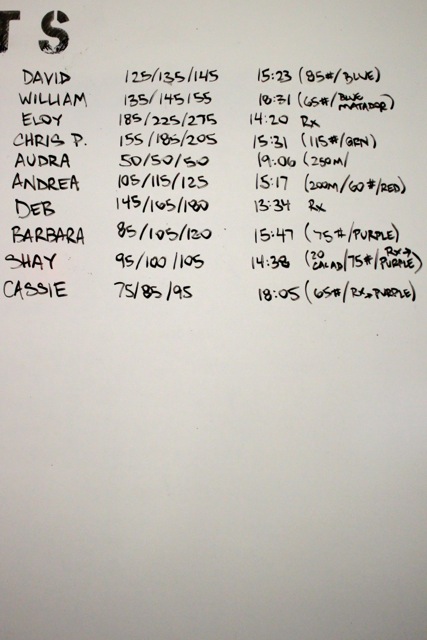 TS
DAVID 125/135/145 15:23 (85#/BLUE)
WILLIAM 135/145/155 18:31 (65#/BLUE MATADOR)
ELOY 185/225/275 14:20 Rx
CHRIS P. 155/185/205 15:31 (115#/GRN)
AUDRA 50/50/50 19:06 (250M/
ANDREA 105/115/125 15:17 (200M/60#/RED)
DEB 145/165/180 13:34 Rx
BARBARA 85/105/120 15:47 (75#/PURPLE)
SHAY 95/100/105 14:38 (20 CALAD/75#/Rx→PURPLE)
CASSIE 75/85/95 18:05 (65#/Rx→PURPLE)